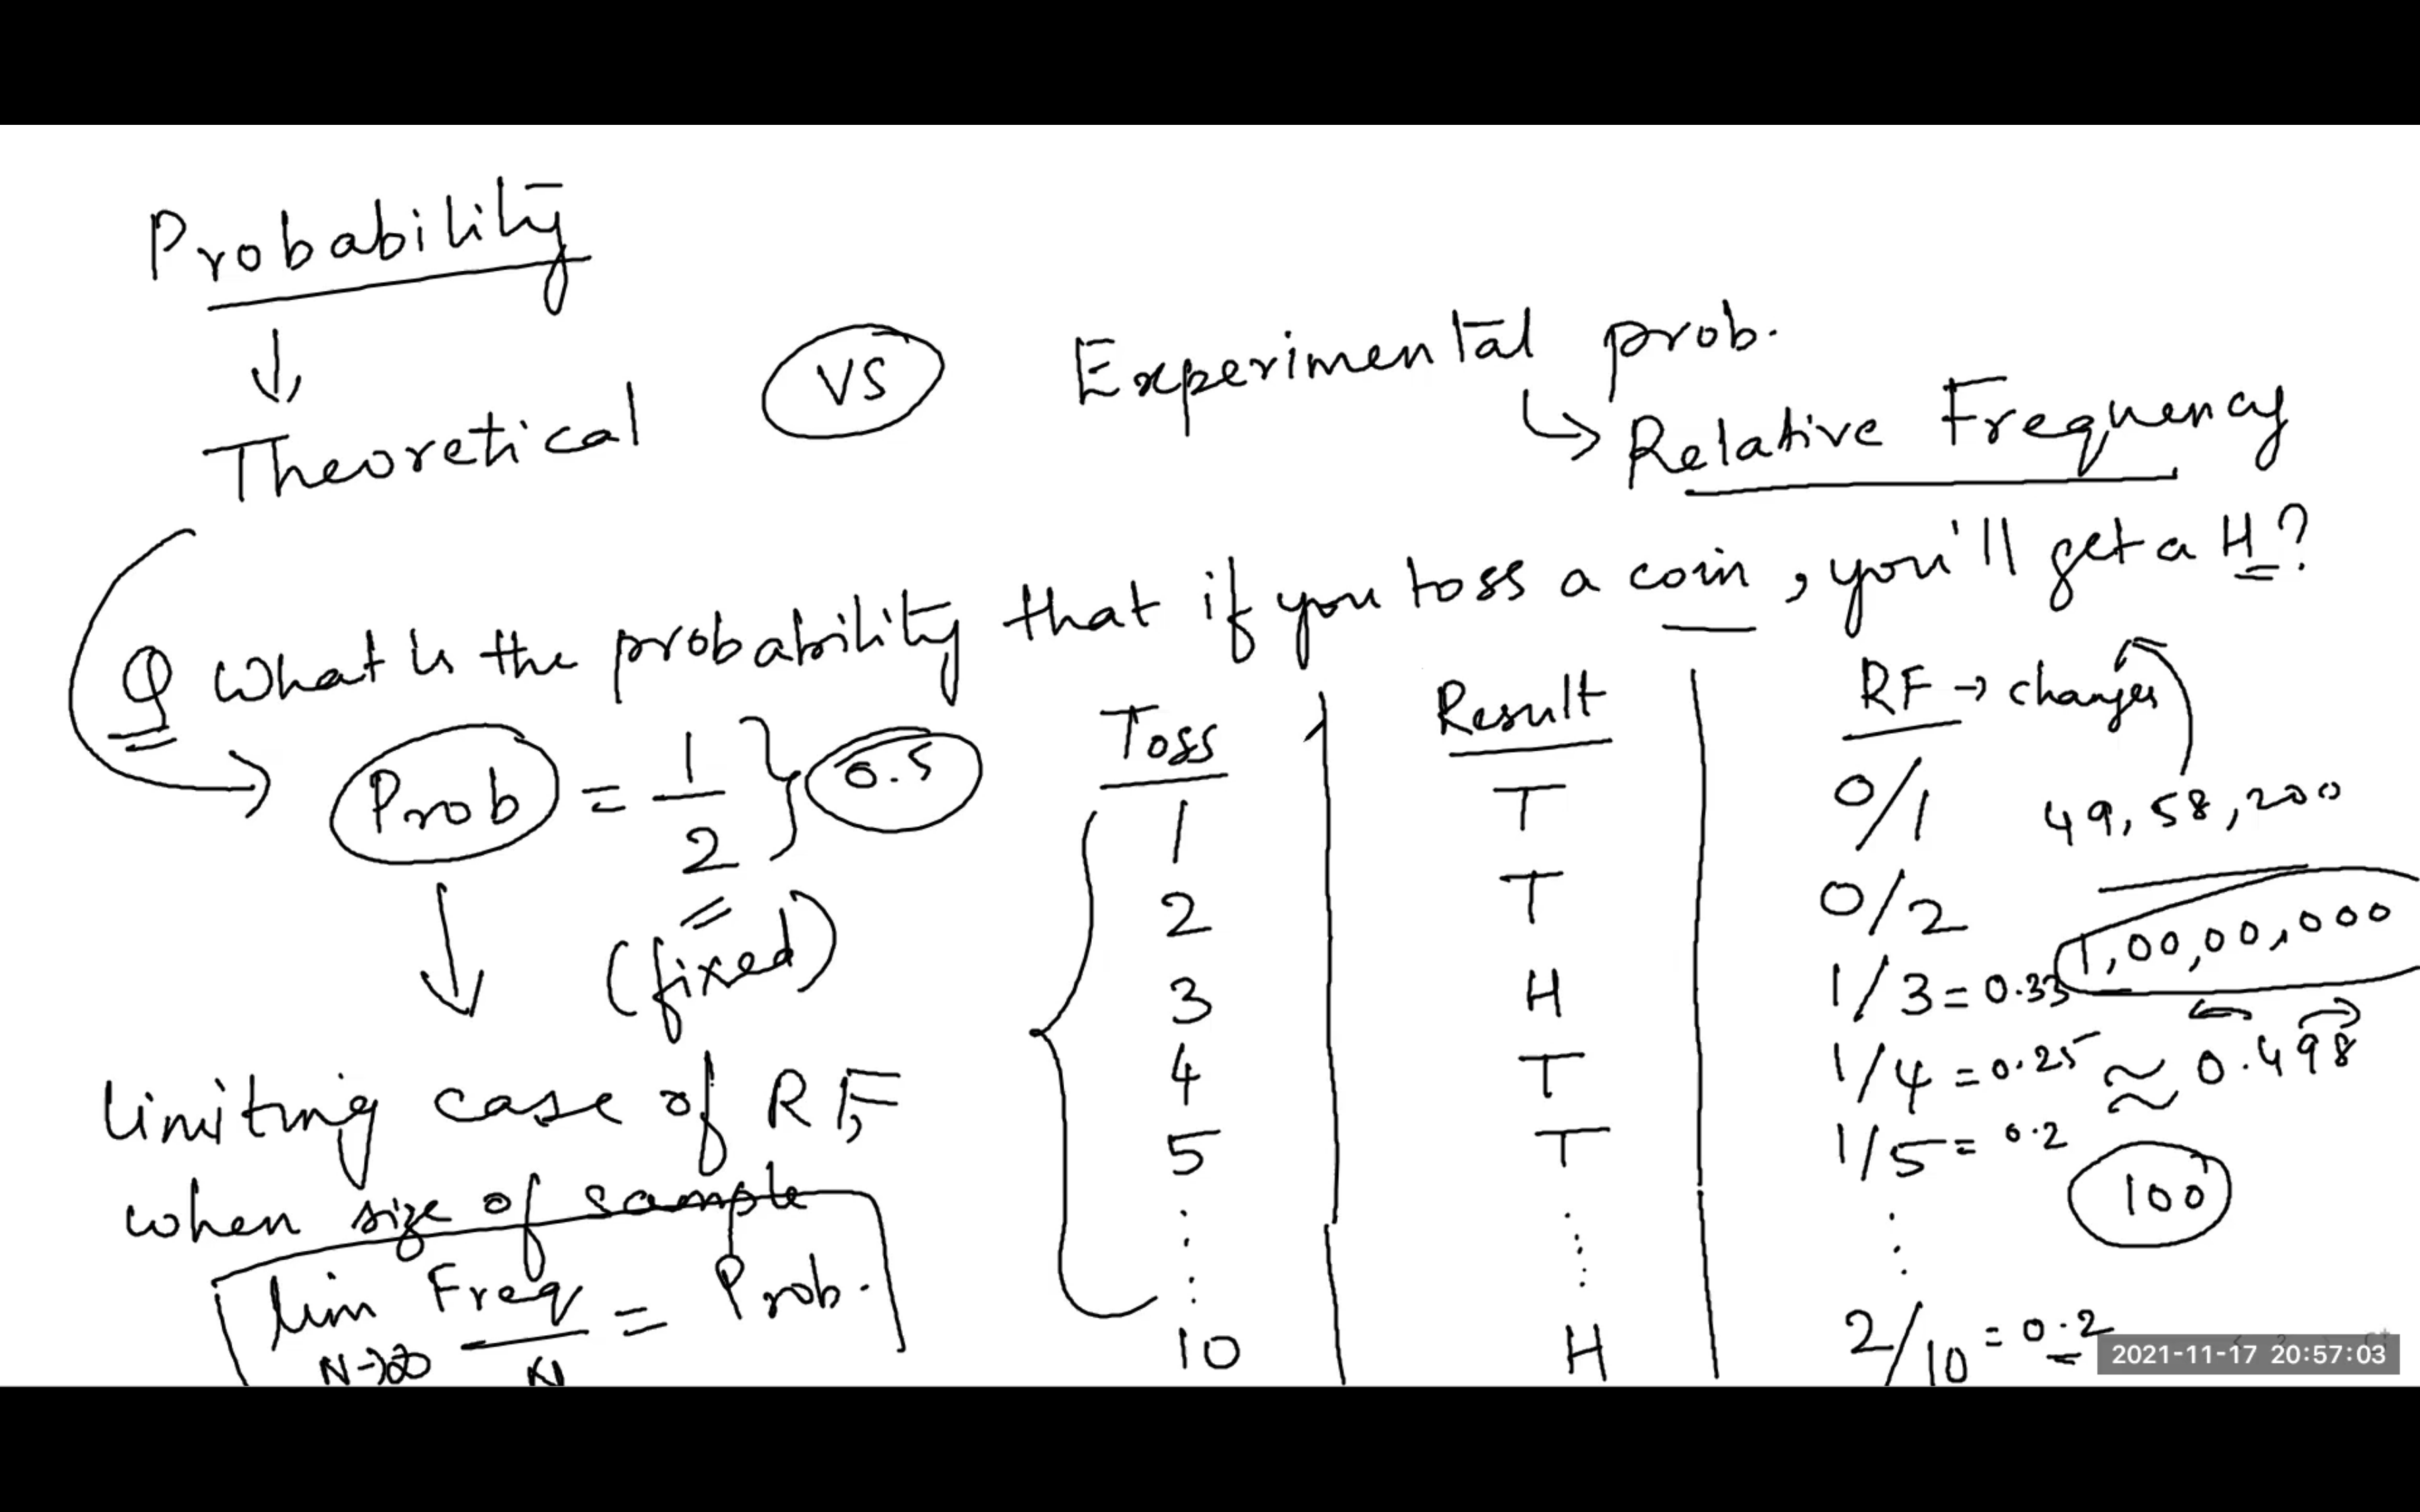 Probability
Theoretical VS Experimental prob.
Relative Frequency
Q What is the probability that if you toss a coin, you'll get a H?
Prob = 1/2 } 0.5
(fixed)
limiting case of RF,
when size of sample
lim N→∞ Freq/N = Prob.
Toss Result RF → changes
1 T 0/1 49,58,200
2 T 0/2 1,00,00,000
3 H 1/3 = 0.33
4 T 1/4 = 0.25 ≈ 0.498
5 T 1/5 = 0.2 100
10 H 2/10 = 0.2
2021-11-17 20:57:03